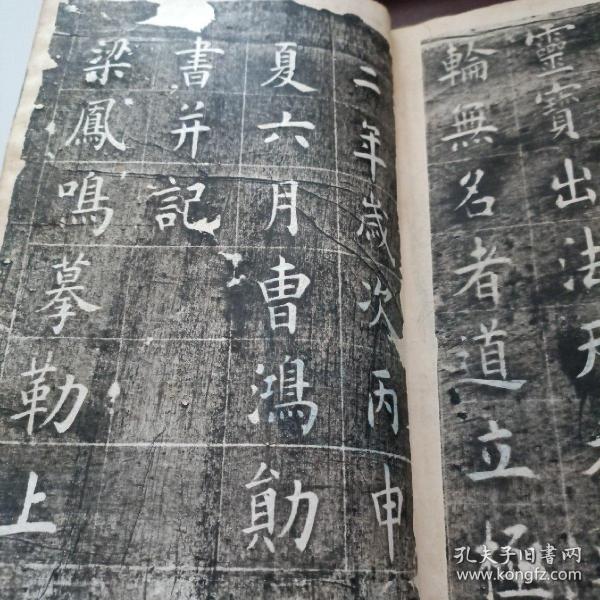 靈寶出法天
輪無名者道立極
二年歲次丙申
夏六月曹鴻勛
書并記
梁鳳鳴摹勒上
孔夫子旧书网
www.kongfz.com